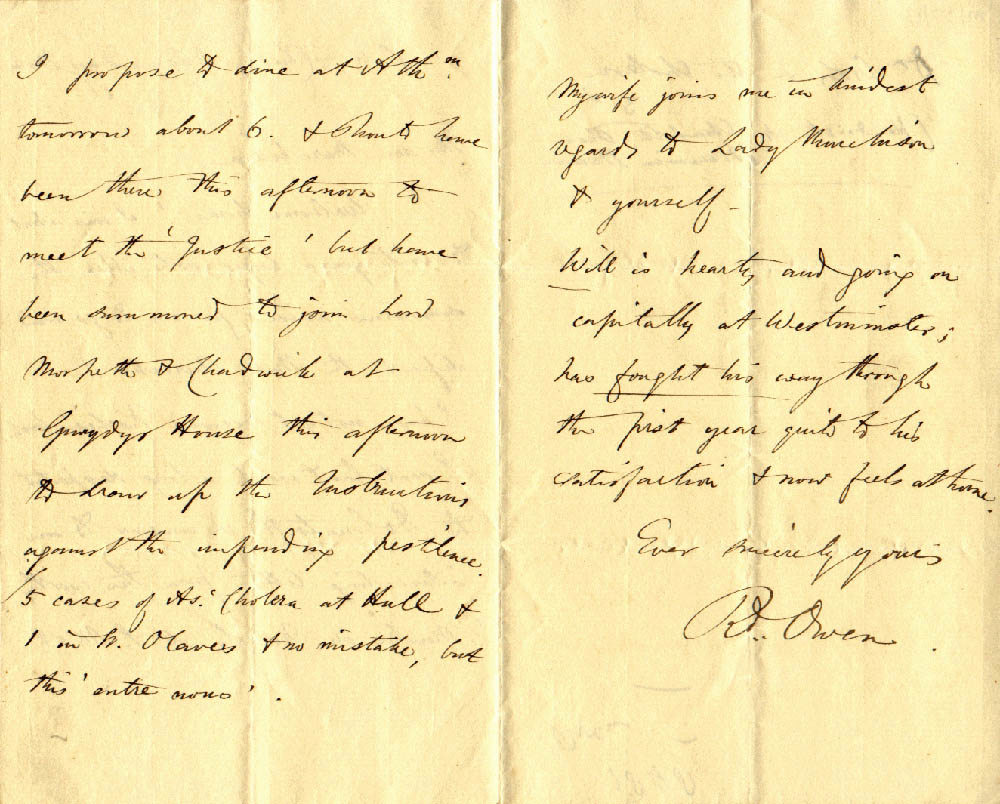 I propose to dine at Ath^m.
tomorrow about 6. & should have
been there this afternoon to
meet the 'Justice' but have
been summoned to join Lord
Morpeth & Chadwick at
Gwydyr House this afternoon
to draw up the Instructions
against the impending pestilence.
/5 cases of As: Cholera at Hull &
1 in St. Olaves & no mistake, but
this 'entre nous'.
My wife joins me in kindest
regards to Lady Murchison
& yourself –
Will is hearty and going on
capitally at Westminster;
has fought his way through
the first year quite to his
satisfaction & now feels at home.
Ever sincerely yours
Rd. Owen